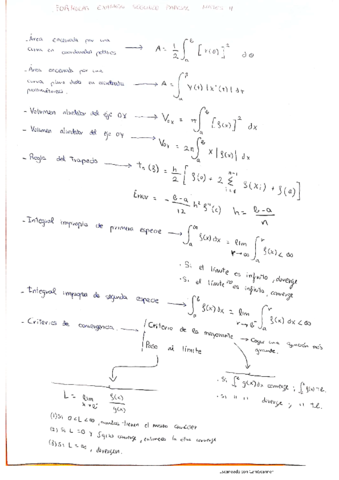 FÓRMULAS EXAMEN SEGUNDO PARCIAL
- Área encerrada por una curva en coordenadas polares → A = 1/2 ∫ [r(θ)]² dθ
- Área encerrada por una curva plana dada en
paramétricas → A = ∫ y(t) |x'(t)| dt
- Volumen alrededor del eje OX → Vox = π ∫ₐᵇ [f(x)]² dx
- Volumen alrededor del eje OY → Voy = 2π ∫ₐᵇ x |f(x)| dx
- Regla del Trapecio → tn(f) = h/2 [f(a) + 2 Σ f(xi) + f(b)]
Error = - (b-a)/12 h² f''(c) h = (b-a)/n
- Integral impropia de primera especie → ∫ₐ^∞ f(x) dx = lim ∫ₐʳ f(x) < ∞
· Si el límite es infinito, diverge
· Si el límite no es infinito, converge
- Integral impropia de segunda especie → ∫ₐᵇ f(x) dx = lim ∫ₐʳ f(x) dx < ∞
- Criterios de convergencia → Criterio de la mayorante → Coger una función más grande.
Paso al límite
· Si ∫ g(x) dx converge, ∫ f(x)
· Si " " diverge, "
L = lim f(x)/g(x)
(1) Si 0 < L < ∞, ambas tienen el mismo carácter
(2) Si L = 0 y ∫ g(x) converge, entonces la otra converge
(3) Si L = ∞, diverge.